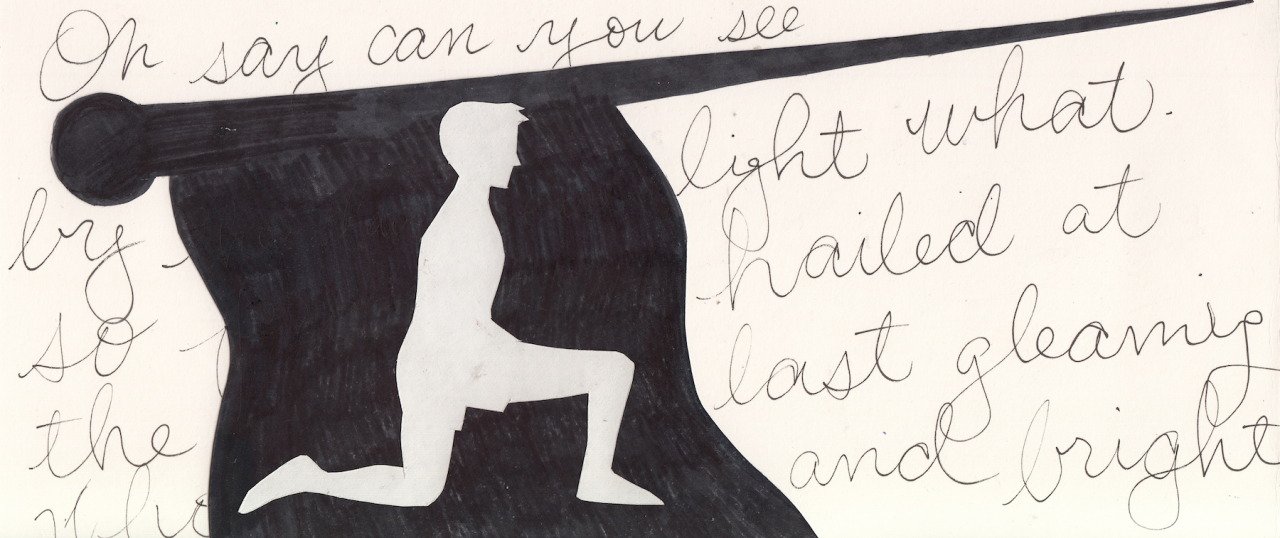 Oh say can you see
by light what
so hailed at
the last gleamig
and bright